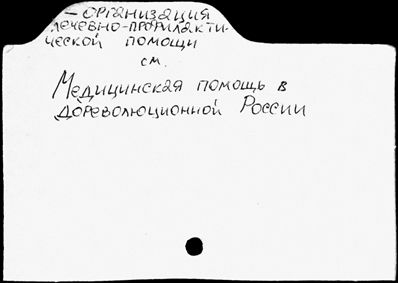 — ОРГАНИЗАЦИЯ
ЛЕЧЕБНО-ПРОФИЛАКТИ-
ЧЕСКОЙ ПОМОЩИ
см.
МЕДИЦИНСКАЯ ПОМОЩЬ В
ДОРЕВОЛЮЦИОННОЙ РОССИИ